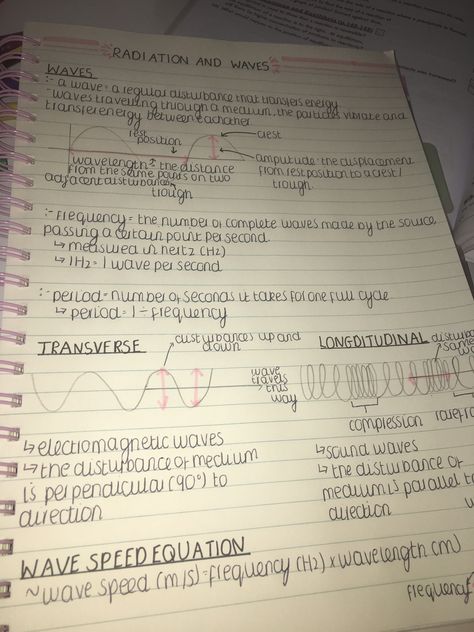 RADIATION AND WAVES
WAVES
:- a wave = a regular disturbance that transfers energy
- waves travelling through a medium, the particles vibrate and
transfer energy between eachother.
rest
position
crest
wavelength = the distance
from the same points on two
adjacent disturbances
trough
amplitude = the displacement
from rest position to a crest /
trough.
:- frequency = the number of complete waves made by the source
passing a certain point per second.
↳ measured in hertz (Hz)
↳ 1Hz = 1 wave per second
:- period = number of seconds it takes for one full cycle
↳ period = 1 ÷ frequency
TRANSVERSE
disturbances up and
down
wave
travels
this
way
↳ electromagnetic waves
↳ the disturbance of medium
is perpendicular (90°) to
direction
LONGDITUDINAL
disturba
same
wa
compression
rarefa
↳ sound waves
↳ the disturbance of
medium is parallel to
direction
WAVE SPEED EQUATION
~ wave speed (m/s) = frequency (Hz) x wavelength (m)
frequency